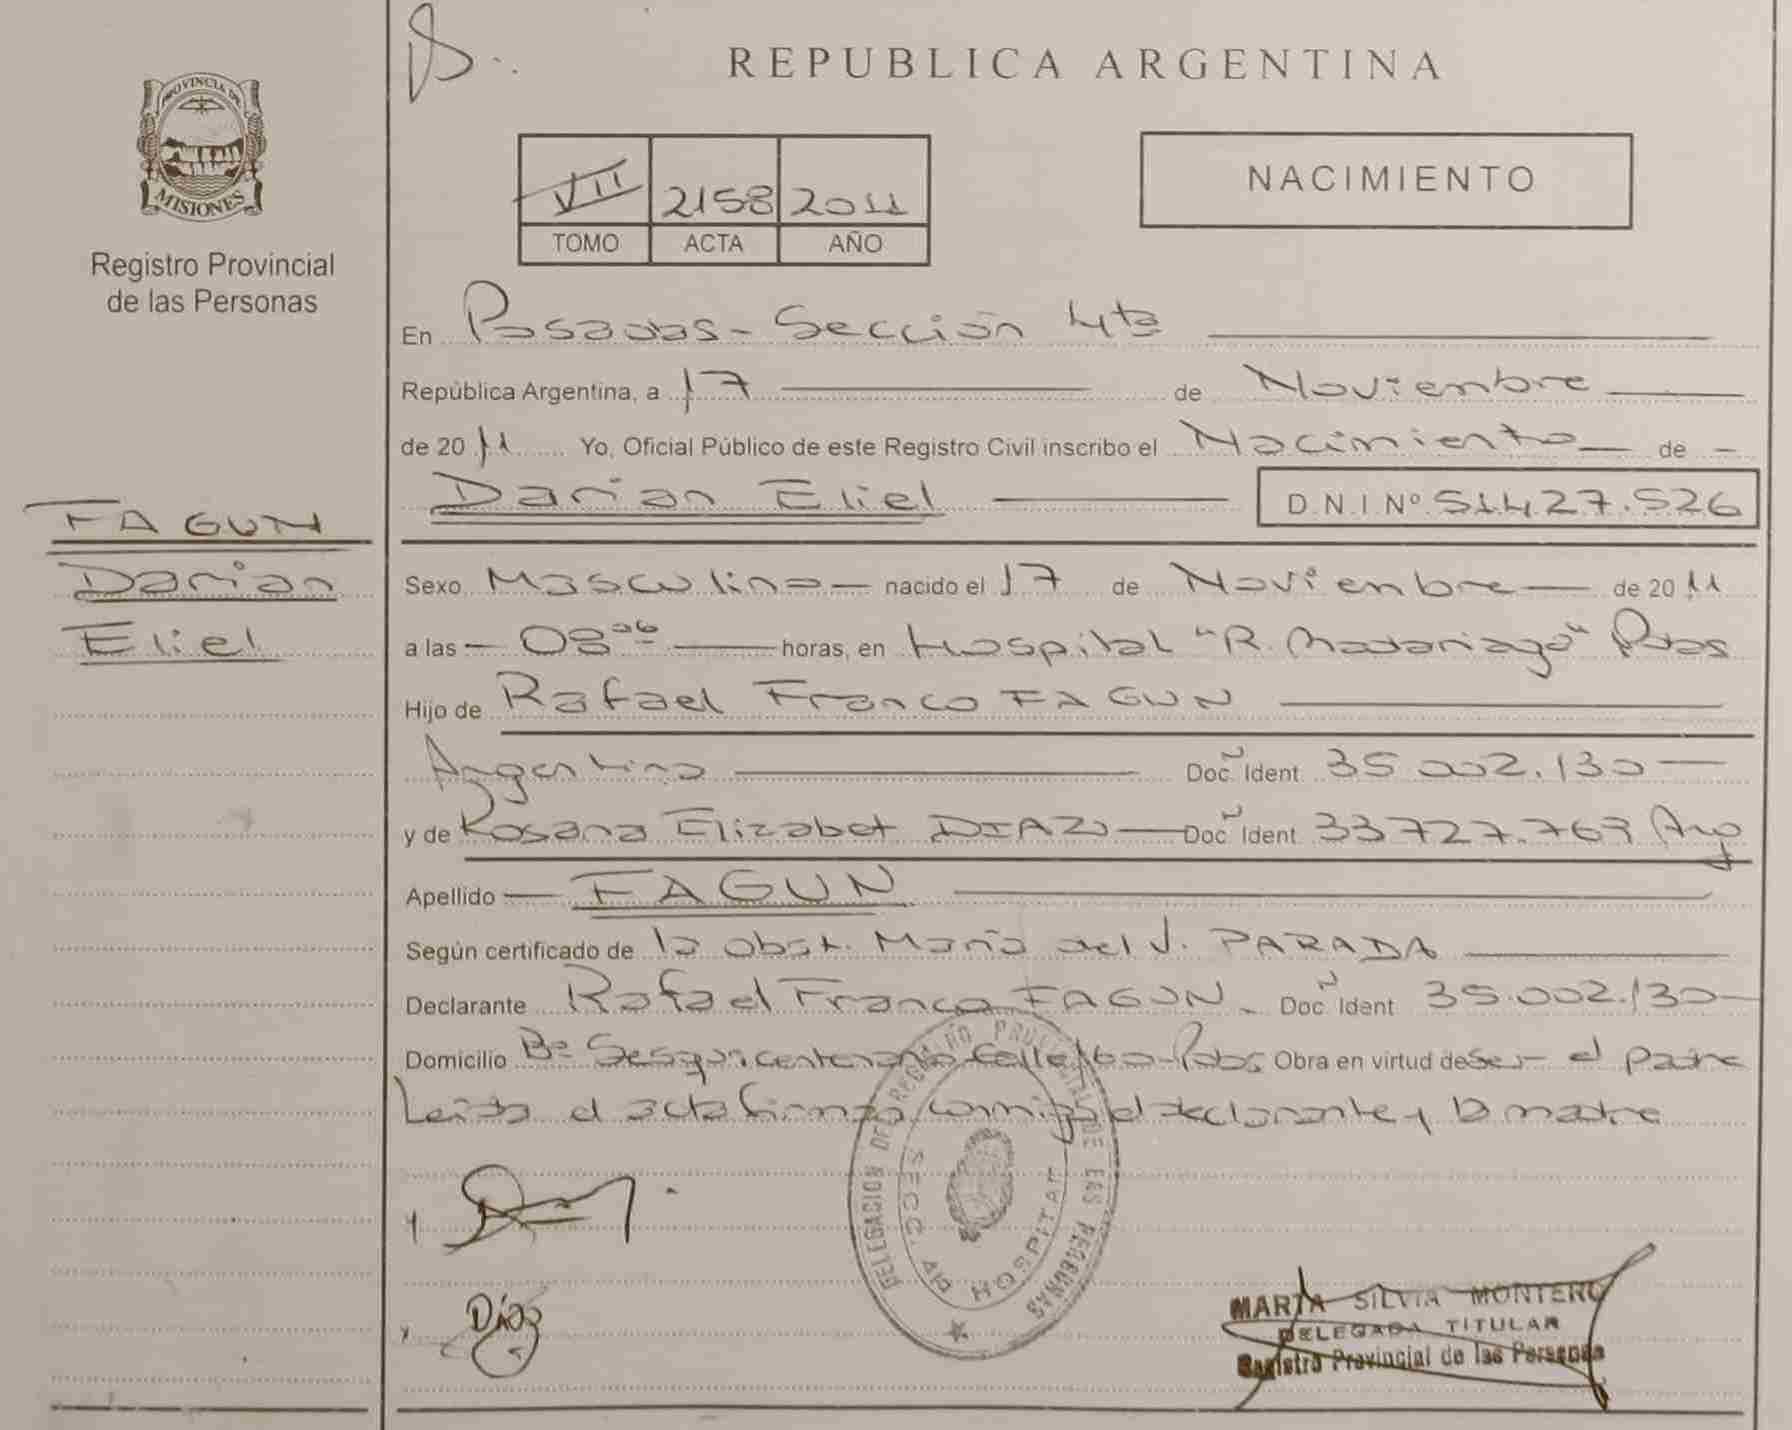 REPUBLICA ARGENTINA
PROVINCIA DE
MISIONES
Registro Provincial
de las Personas
VII 2158 2011
TOMO ACTA AÑO
NACIMIENTO
En Posadas - Sección 4ta
República Argentina, a 17 de Noviembre
de 20 11 Yo, Oficial Público de este Registro Civil inscribo el Nacimiento de
Darian Eliel D.N.I Nº 51.427.526
FAGUN
Darian
Eliel
Sexo Masculino nacido el 17 de Noviembre de 20 11
a las 08 06 horas, en Hospital "R. Madariaga" Pdas
Hijo de Rafael Franco FAGUN
Argentino Doc. Ident 35.002.130
y de Rosana Elizabet DIAZ Doc. Ident 33.727.763 Arg
Apellido FAGUN
Según certificado de la obst. María del J. PARADA
Declarante Rafael Franco FAGUN Doc. Ident 35.002.130
Domicilio Bº Sesquicentenario Calle 160 - Pdas Obra en virtud de Ser el padre
Leída el acta firman conmigo el declarante y la madre
DELEGACION DEL REGISTRO PROVINCIAL DE LAS PERSONAS
SECC. 4ta HOSPITAL
Díaz
MARTA SILVIA MONTERO
DELEGADA TITULAR
Registro Provincial de las Personas